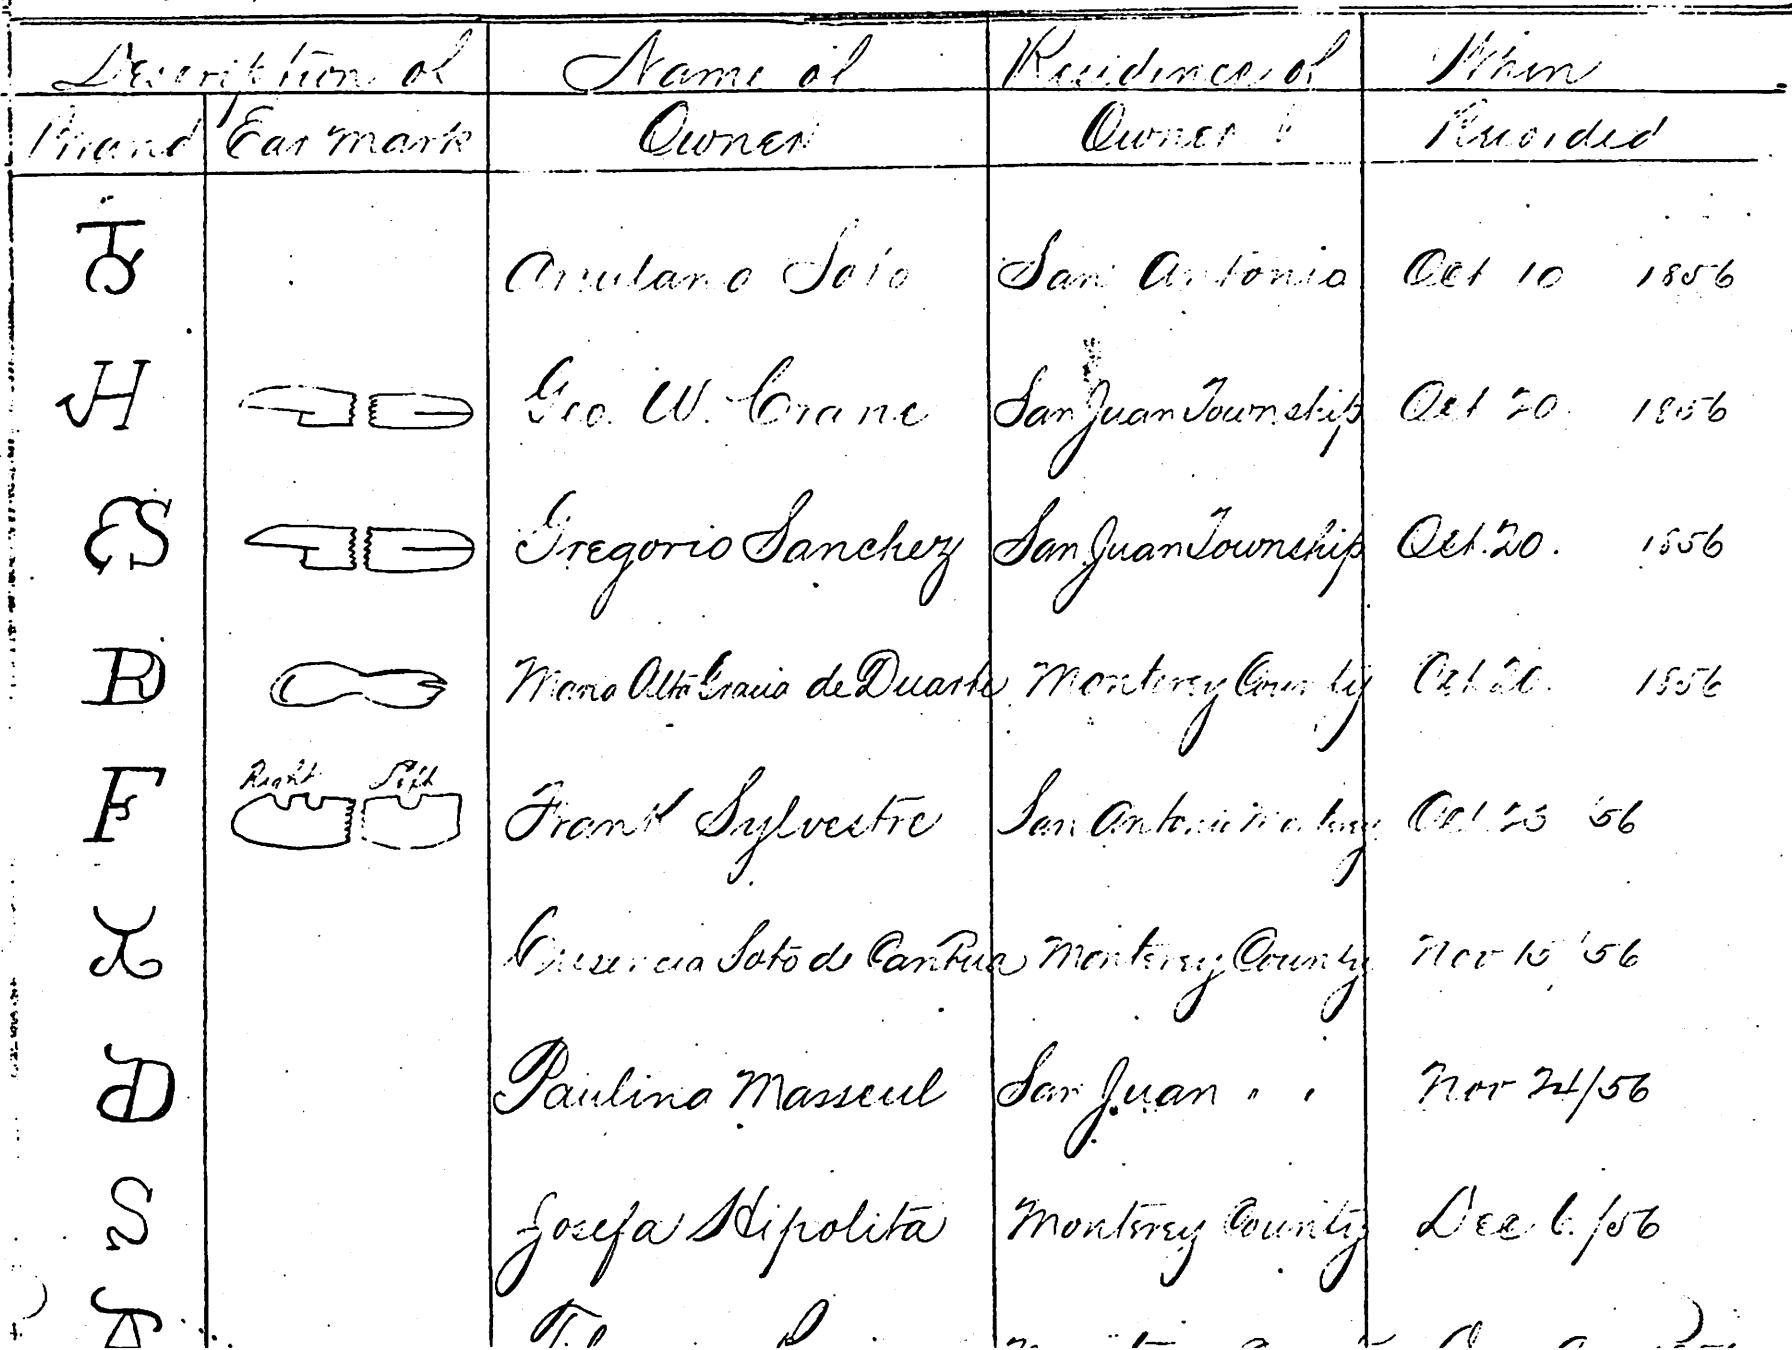 Description of Name of Residence of When
Brand Ear mark Owner Owner Recorded
Soto San Antonio Oct 10 1856
H Geo. W. Crane San Juan Township Oct 20. 1856
ES Gregorio Sanchez San Juan Township Oct. 20. 1856
B Maria Alta Gracia de Duarte Monterey County Oct 20. 1856
Right Left
F Frank Sylvestre San Antonio Monterey Oct 23 '56
Soto de Cantua Monterey County Nov 15 '56
D Paulino Masseul San Juan " " Nov 24/56
S Josefa Hipolita Monterey County Dec 6./56